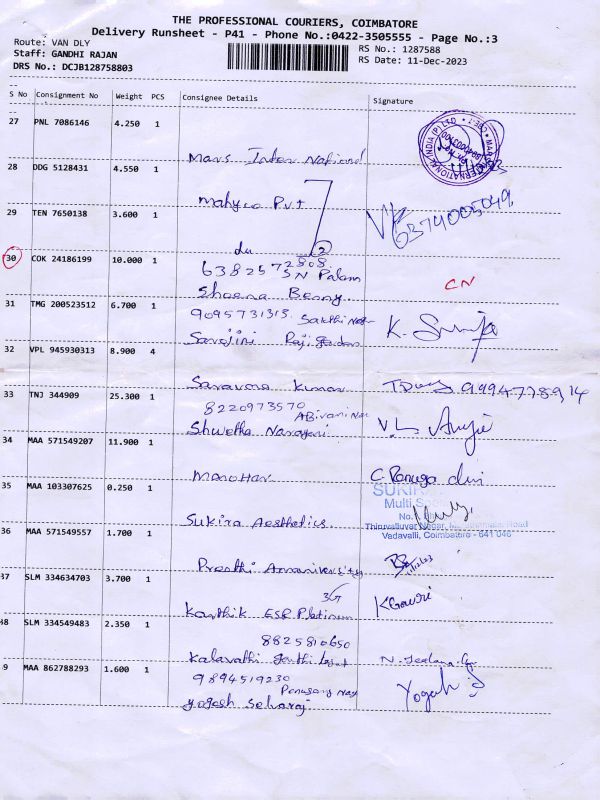 THE PROFESSIONAL COURIERS, COIMBATORE
Delivery Runsheet - P41 - Phone No.:0422-3505555 - Page No.:3
Route: VAN DLY
Staff: GANDHI RAJAN
DRS No.: DCJB128758803
RS No.: 1287588
RS Date: 11-Dec-2023
S No Consignment No Weight PCS Consignee Details Signature
27 PNL 7086146 4.250 1
Mars International
28 DDG 5128431 4.550 1
Mahyco Pvt
29 TEN 7650138 3.600 1
6374005049
du
30 COK 24186199 10.000 1
6382572808
SN Palam
CN
Sheena Benny
31 TMG 200523512 6.700 1
9095731313 Sakthi Nagar
K.
Sarojini Raji
32 VPL 945930313 8.900 4
Saravana Kumar
9994778914
33 TNJ 344909 25.300 1
8220973570
Abivani Nar
Shwetha Narayani
V.L
34 MAA 571549207 11.900 1
Manohar
C. Renuga devi
35 MAA 103307625 0.250 1
SUKIRA
Multi
No.
Thiruvalluvar Nagar, Road
Vadavalli, Coimbatore - 641 046
Sukira Aesthetics
36 MAA 571549557 1.700 1
Preethi
37 SLM 334634703 3.700 1
3G
KGauri
Karthik ESR Platinum
38 SLM 334549483 2.350 1
8825810650
Kalavathi
N.
39 MAA 862788293 1.600 1
9894519230
Yogesh
yogesh Selvaraj